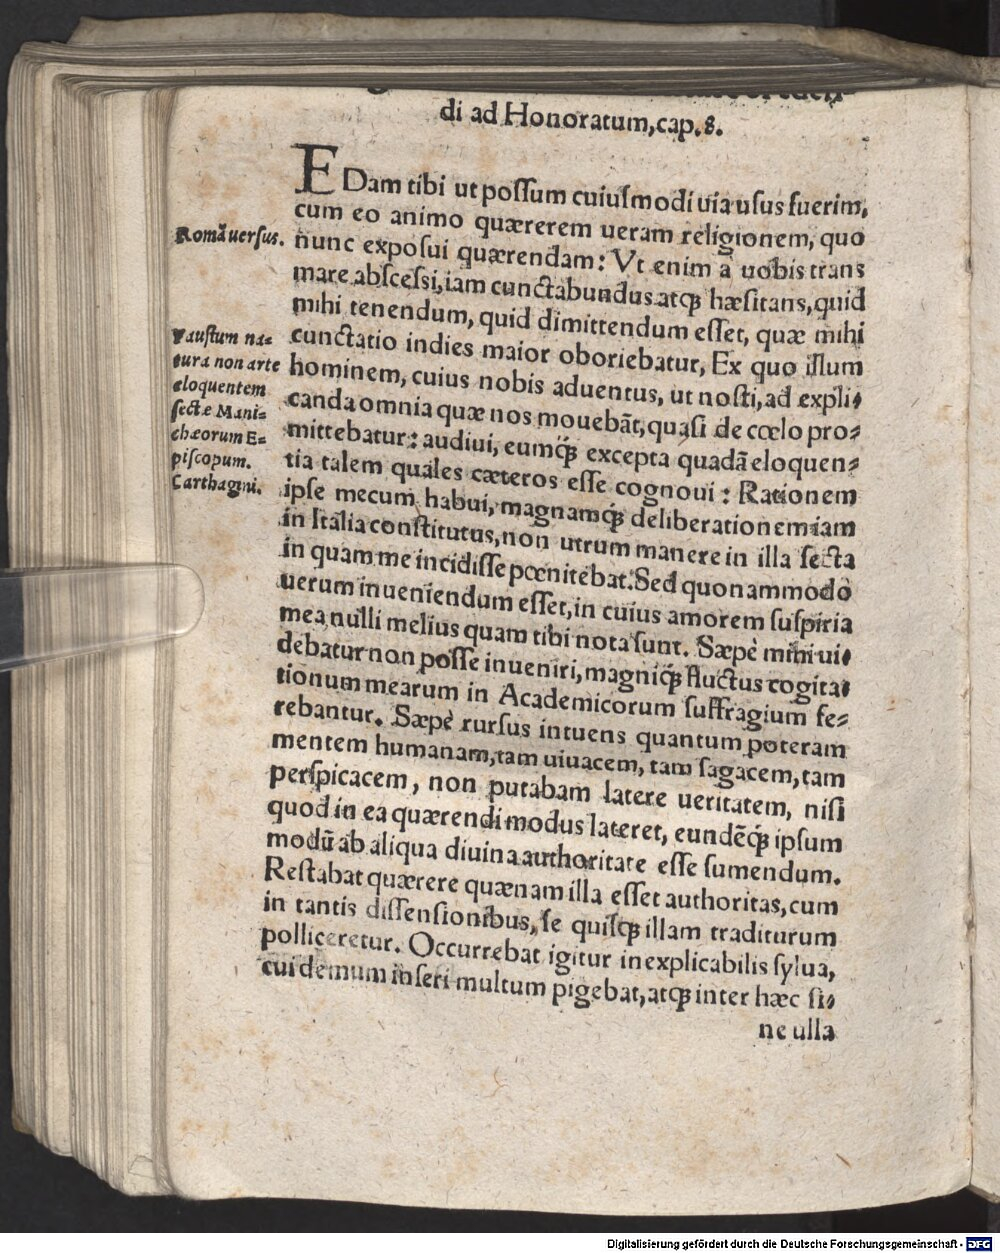 di ad Honoratum, cap. 8.
EDam tibi ut possum cuiusmodi uia usus fuerim,
cum eo animo quærerem ueram religionem, quo
nunc exposui quærendam: Vt enim à uobis trans
mare abscessi, iam cunctabundus atq; hæsitans, quid
mihi tenendum, quid dimittendum esset, quæ mihi
cunctatio indies maior oboriebatur, Ex quo illum
hominem, cuius nobis aduentus, ut nosti, ad expli-
canda omnia quæ nos mouebāt, quasi de cœlo pro-
mittebatur: audiui, eumq́; excepta quadā eloquen-
tia talem quales cæteros esse cognoui: Rationem
ipse mecum habui, magnamq́; deliberationem iam
in Italia constitutus, non utrum manere in illa secta
in quam me incidisse pœnitebat. Sed quonammodo
uerum inueniendum esset, in cuius amorem suspiria
mea nulli melius quam tibi nota sunt. Sæpè mihi ui-
debatur non posse inueniri, magniq́; fluctus cogita-
tionum mearum in Academicorum suffragium fe-
rebantur. Sæpè rursus intuens quantum poteram
mentem humanam, tam uiuacem, tam sagacem, tam
perspicacem, non putabam latere ueritatem, nisi
quod in ea quærendi modus lateret, eundēq́; ipsum
modū ab aliqua diuina authoritate esse sumendum.
Restabat quærere quænam illa esset authoritas, cum
in tantis dissensionibus, se quisq; illam traditurum
polliceretur. Occurrebat igitur inexplicabilis sylua,
cui demum inseri multum pigebat, atq; inter hæc si-
ne ulla
Romā uersus.
Faustum na-
tura non arte
eloquentem
sectæ Mani-
chæorum E-
piscopum.
Carthagini.
Digitalisierung gefördert durch die Deutsche Forschungsgemeinschaft - DFG